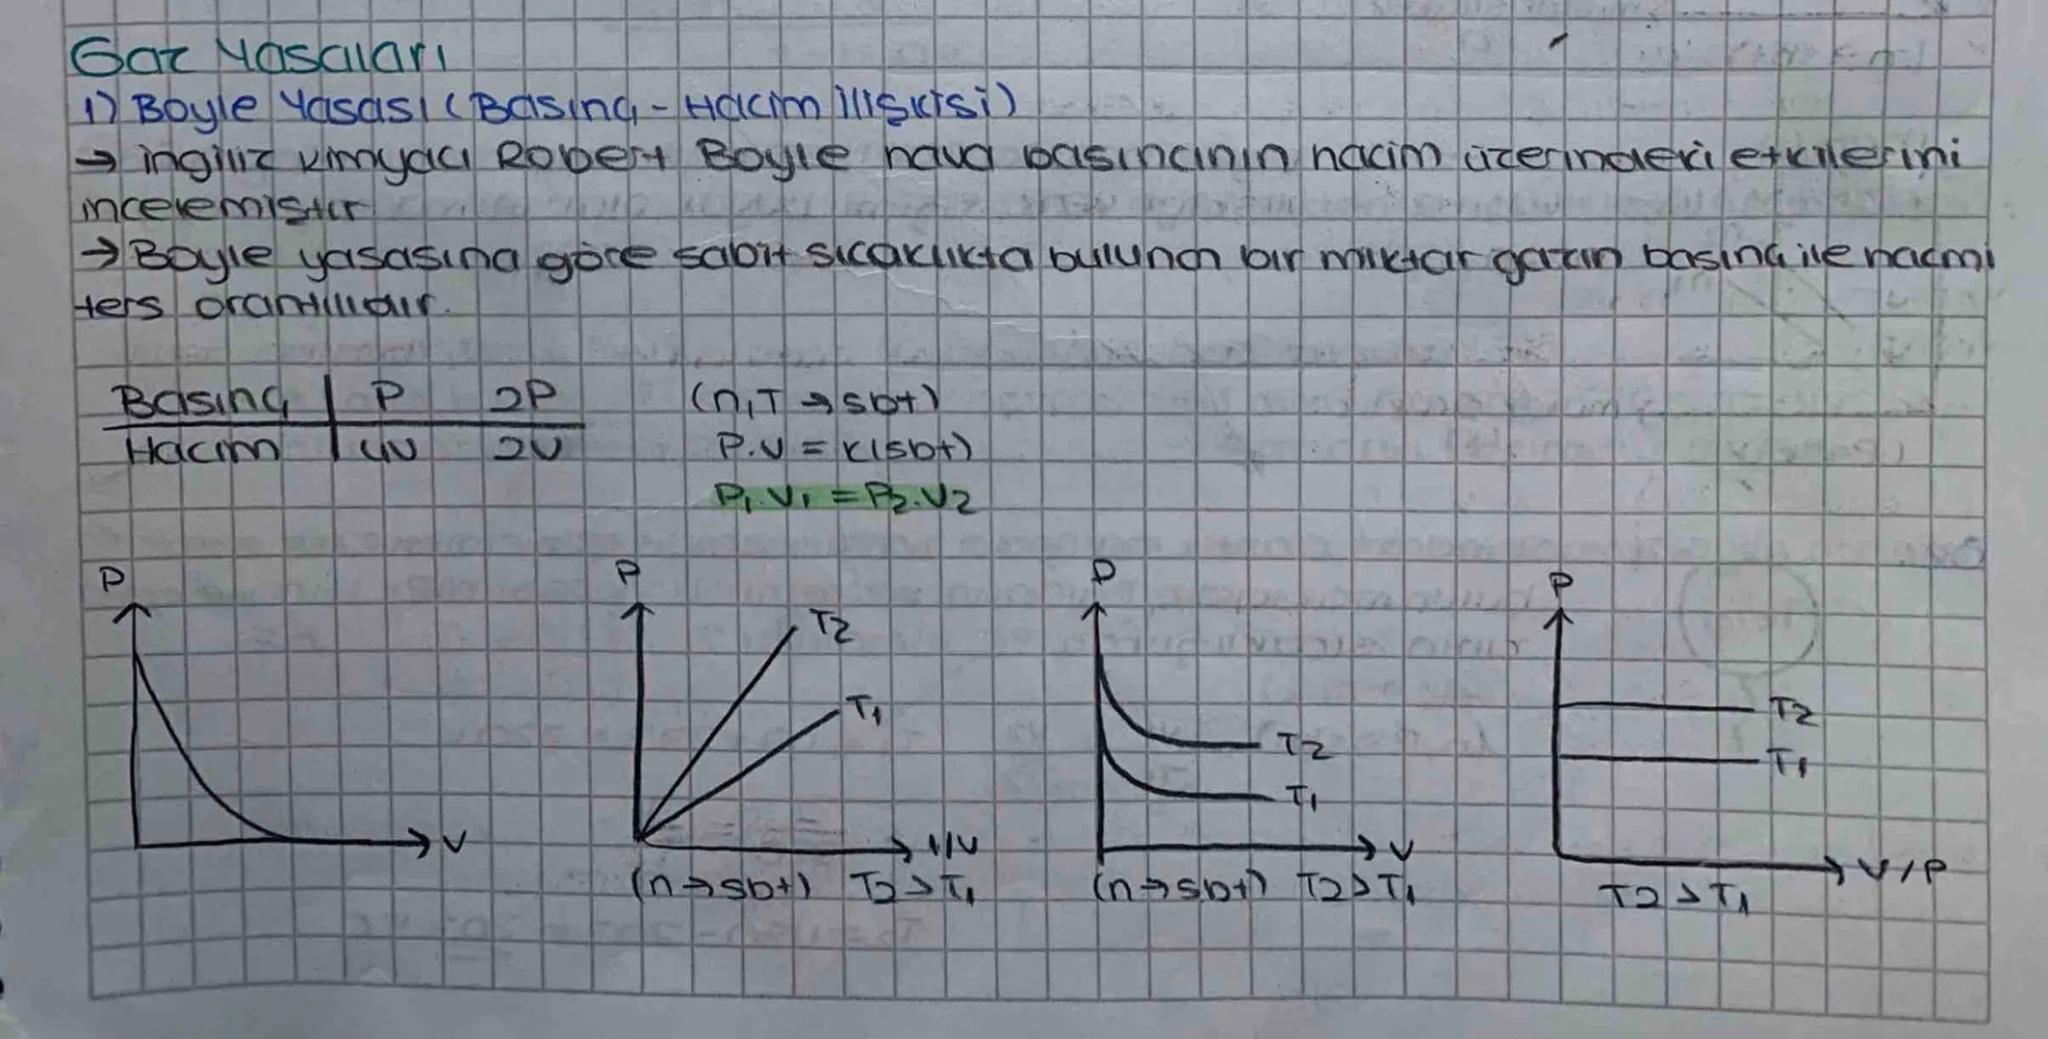 Gaz Yasaları
1) Boyle Yasası (Basınç - Hacim İlişkisi)
→ ingiliz kimyacı Robert Boyle hava basıncının hacim üzerindeki etkilerini
incelemiştir
→ Boyle yasasına göre sabit sıcaklıkta bulunan bir miktar gazın basınç ile hacmi
ters orantılıdır.
Basınç P 2P (n,T → sbt)
Hacim 4V 2V P.V = k(sbt)
P1.V1 = P2.V2
P P P P
T2 T1 T2 T1 T2 T1
V 1/V V V/P
(n→sbt) T2>T1 (n→sbt) T2>T1 T2>T1